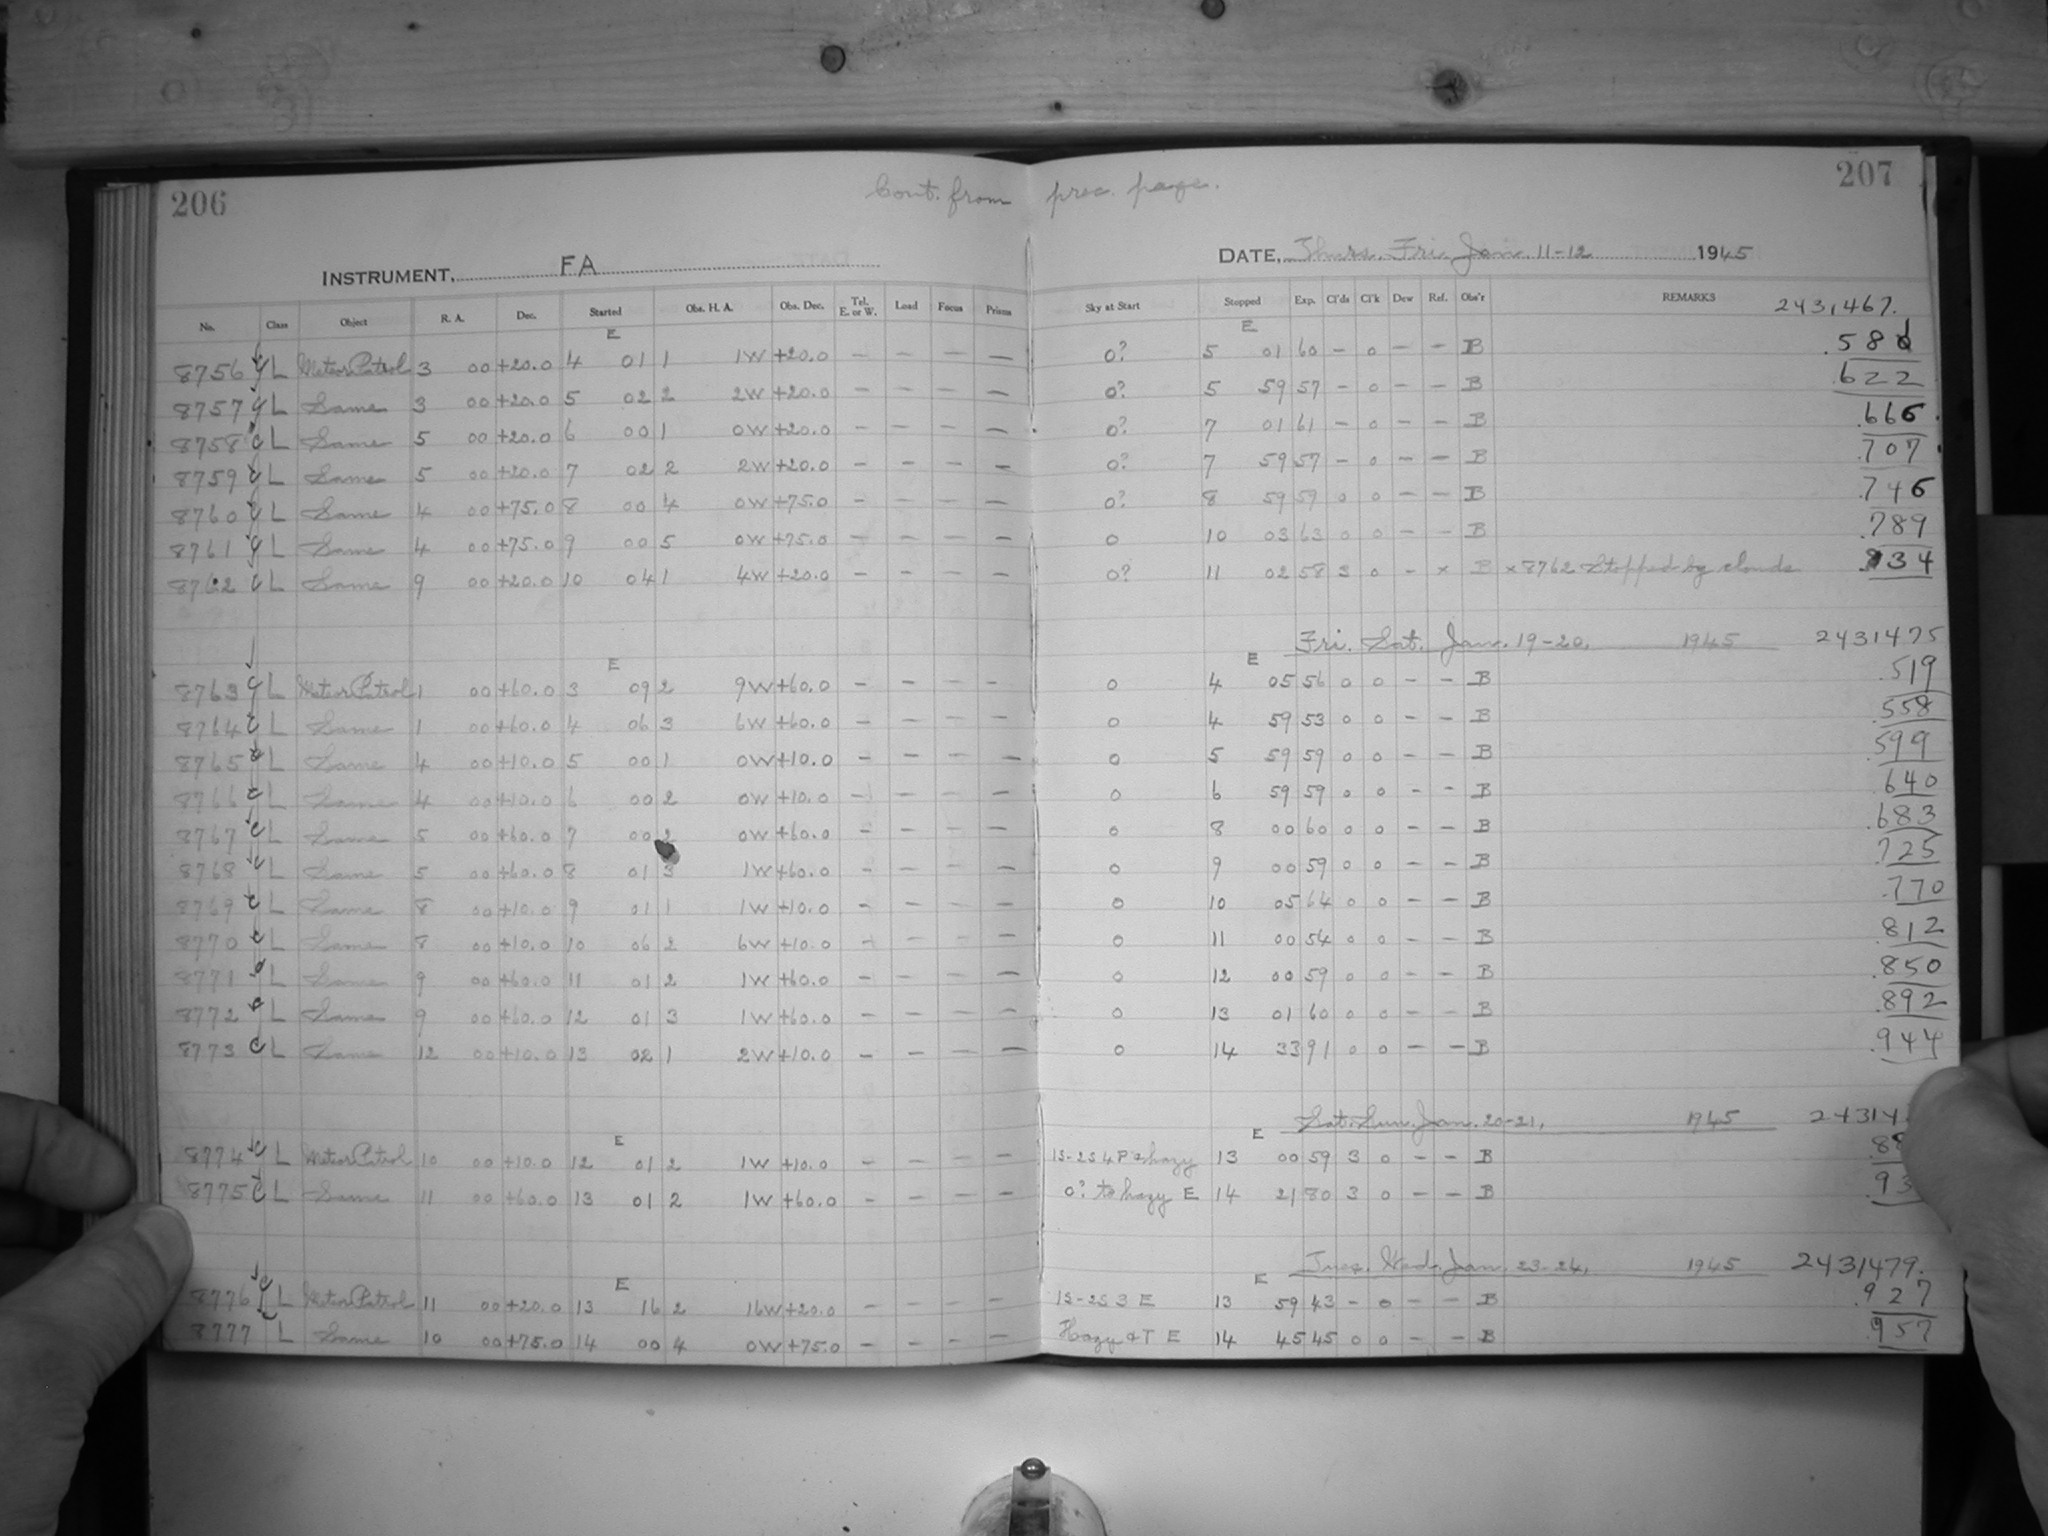 206
207
Cont. from prec. page.
INSTRUMENT, FA
DATE, Thurs. Fri. Jan. 11-12 1945
No. Class Object R. A. Dec. Started Obs. H. A. Obs. Dec. Tel. E. or W. Load Focus Prisms Sky at Start Stopped Exp. Cl'ds Cl'k Dew Ref. Obs'r REMARKS 2431467.
E E
8756 L Meteor Patrol 3 00 +20.0 4 01 1 1W +20.0 - - - - 0? 5 01 60 - 0 - - B
8757 L Same 3 00 +20.0 5 02 2 2W +20.0 - - - - 0? 5 59 57 - 0 - - B .622
8758 L Same 5 00 +20.0 6 00 1 0W +20.0 - - - - 0? 7 01 61 - 0 - - B .666
8759 L Same 5 00 +20.0 7 02 2 2W +20.0 - - - - 0? 7 59 57 - 0 - - B .707
8760 L Same 4 00 +75.0 8 00 4 0W +75.0 - - - - 0? 8 59 59 0 0 - - B .746
8761 L Same 4 00 +75.0 9 00 5 0W +75.0 - - - - 0 10 03 63 0 0 - - B .789
8762 L Same 9 00 +20.0 10 04 1 4W +20.0 - - - - 0? 11 02 58 3 0 - x B x8762 Stopped by clouds .834
Fri. Sat. Jan. 19-20, 1945 2431475
E E
8763 L Meteor Patrol 1 00 +60.0 3 09 2 9W +60.0 - - - - 0 4 05 56 0 0 - - B .519
8764 L Same 1 00 +60.0 4 06 3 6W +60.0 - - - - 0 4 59 53 0 0 - - B .558
8765 L Same 4 00 +10.0 5 00 1 0W +10.0 - - - - 0 5 59 59 0 0 - - B .599
8766 L Same 4 00 +10.0 6 00 2 0W +10.0 - - - - 0 6 59 59 0 0 - - B .640
8767 L Same 5 00 +60.0 7 00 2 0W +60.0 - - - - 0 8 00 60 0 0 - - B .683
8768 L Same 5 00 +60.0 8 01 3 1W +60.0 - - - - 0 9 00 59 0 0 - - B .725
8769 L Same 8 00 +10.0 9 01 1 1W +10.0 - - - - 0 10 05 64 0 0 - - B .770
8770 L Same 8 00 +10.0 10 06 2 6W +10.0 - - - - 0 11 00 54 0 0 - - B .812
8771 L Same 9 00 +60.0 11 01 2 1W +60.0 - - - - 0 12 00 59 0 0 - - B .850
8772 L Same 9 00 +60.0 12 01 3 1W +60.0 - - - - 0 13 01 60 0 0 - - B .892
8773 L Same 12 00 +10.0 13 02 1 2W +10.0 - - - - 0 14 33 91 0 0 - - B .944
Sat. Sun. Jan. 20-21, 1945 24314
E E
8774 L Meteor Patrol 10 00 +10.0 12 01 2 1W +10.0 - - - - 1S-2S 4 P & hazy 13 00 59 3 0 - - B
8775 L Same 11 00 +60.0 13 01 2 1W +60.0 - - - - 0? to hazy E 14 21 80 3 0 - - B
Tues. Wed. Jan. 23-24, 1945 2431479.
E E
8776 L Meteor Patrol 11 00 +20.0 13 16 2 16W +20.0 - - - - 1S-2S 3 E 13 59 43 - 0 - - B .927
8777 L Same 10 00 +75.0 14 00 4 0W +75.0 - - - - Hazy & T E 14 45 45 0 0 - - B .957